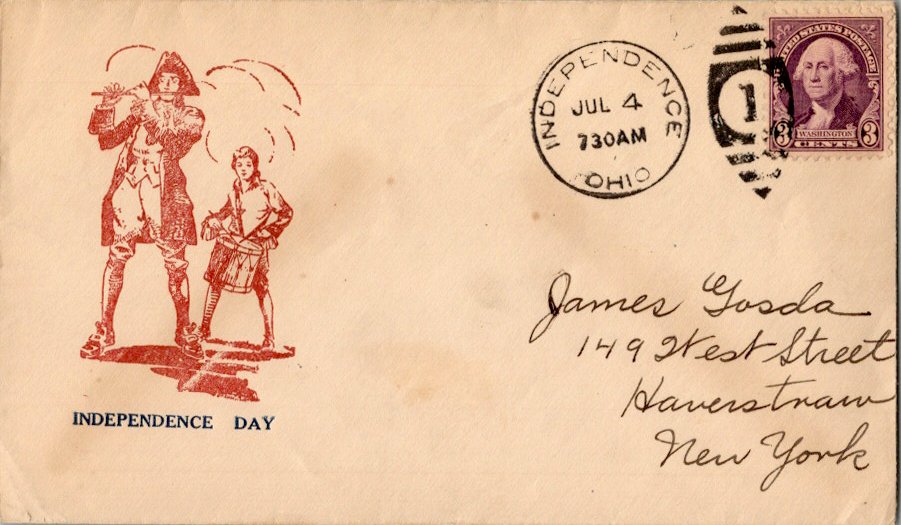 INDEPENDENCE
JUL 4
730AM
OHIO
1
UNITED STATES POSTAGE
3 WASHINGTON 3
CENTS
James Gosda
149 West Street
Haverstraw
New York
INDEPENDENCE DAY